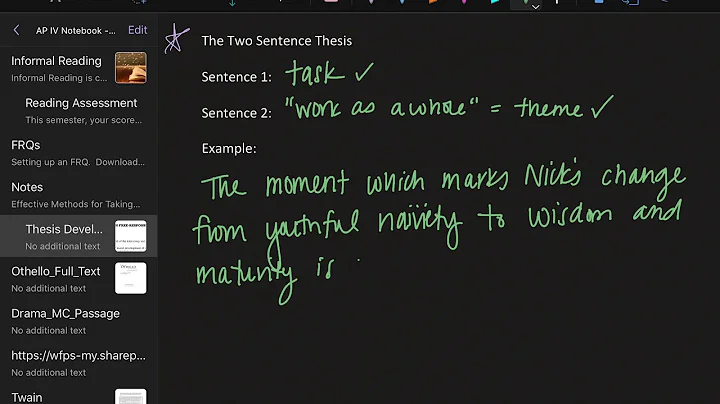 AP IV Notebook -...
Edit
Informal Reading
Informal Reading is c...
Reading Assessment
This semester, your score...
FRQs
Setting up an FRQ. Download...
Notes
Effective Methods for Taking...
Thesis Devel...
No additional text
Othello_Full_Text
No additional text
Drama_MC_Passage
No additional text
https://wfps-my.sharep...
No additional text
Twain
The Two Sentence Thesis
Sentence 1: task ✓
Sentence 2: "work as a whole" = theme ✓
Example:
The moment which marks Nick's change
from youthful naïviety to wisdom and
maturity is